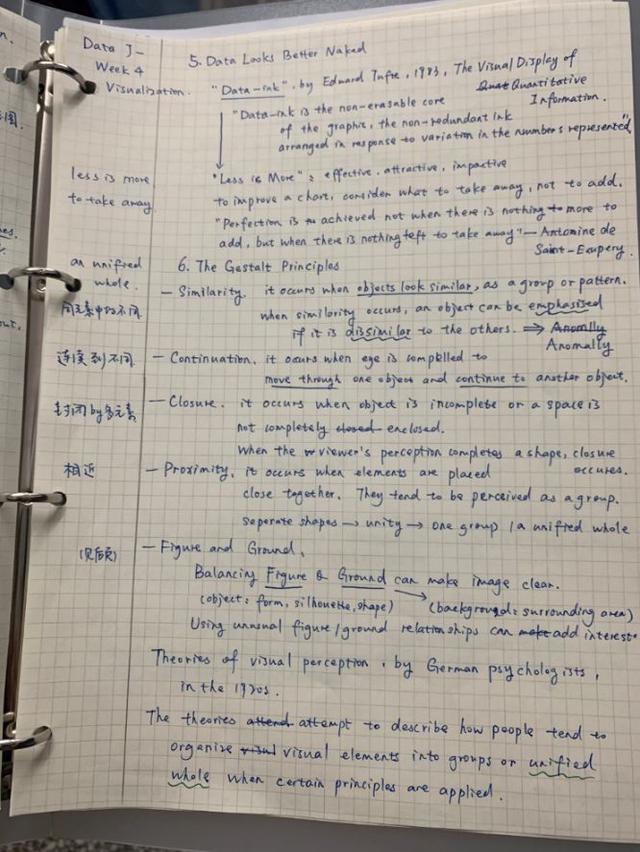 Data J-
Week 4
Visualization.
5. Data Looks Better Naked
"Data-ink", by Edward Tufte, 1983, The Visual Display of
Quantitative
Information.
"Data-ink is the non-erasable core
of the graphic, the non-redundant ink
arranged in response to variation in the numbers represented"
less is more
to take away
"Less is More": effective, attractive, impactive
to improve a chart, consider what to take away, not to add.
"Perfection is achieved not when there is nothing more to
add, but when there is nothing left to take away" — Antonine de
Saint-Exupery.
an unified
whole.
6. The Gestalt Principles
- Similarity, it occurs when objects look similar, as a group or pattern.
同元素中的不同
when similarity occurs, an object can be emphasised
if it is dissimilar to the others. ⇒ Anomally
Anomally
连续到不同
- Continuation, it occurs when eye is complled to
move through one object and continue to another object.
封闭by多元素
- Closure. it occurs when object is incomplete or a space is
not completely closed enclosed.
When the viewer's perception completes a shape, closure
occures.
相近
- Proximity, it occurs when elements are placed
close together. They tend to be perceived as a group.
seperate shapes → unity → one group / a unified whole
- Figure and Ground,
Balancing Figure & Ground can make image clear.
(object: form, silhouette, shape) (background: surrounding area)
Using unusual figure/ground relationships can make add interest.
Theories of visual perception, by German psychologists,
in the 1920s.
The theories attend attempt to describe how people tend to
organize visual elements into groups or unified
whole when certain principles are applied.